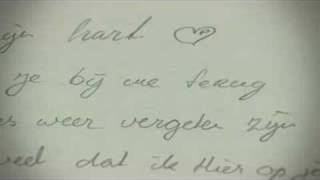 ijn hart ♡
je bij me terug
es weer vergeten zijn
weet dat ik Hier op je